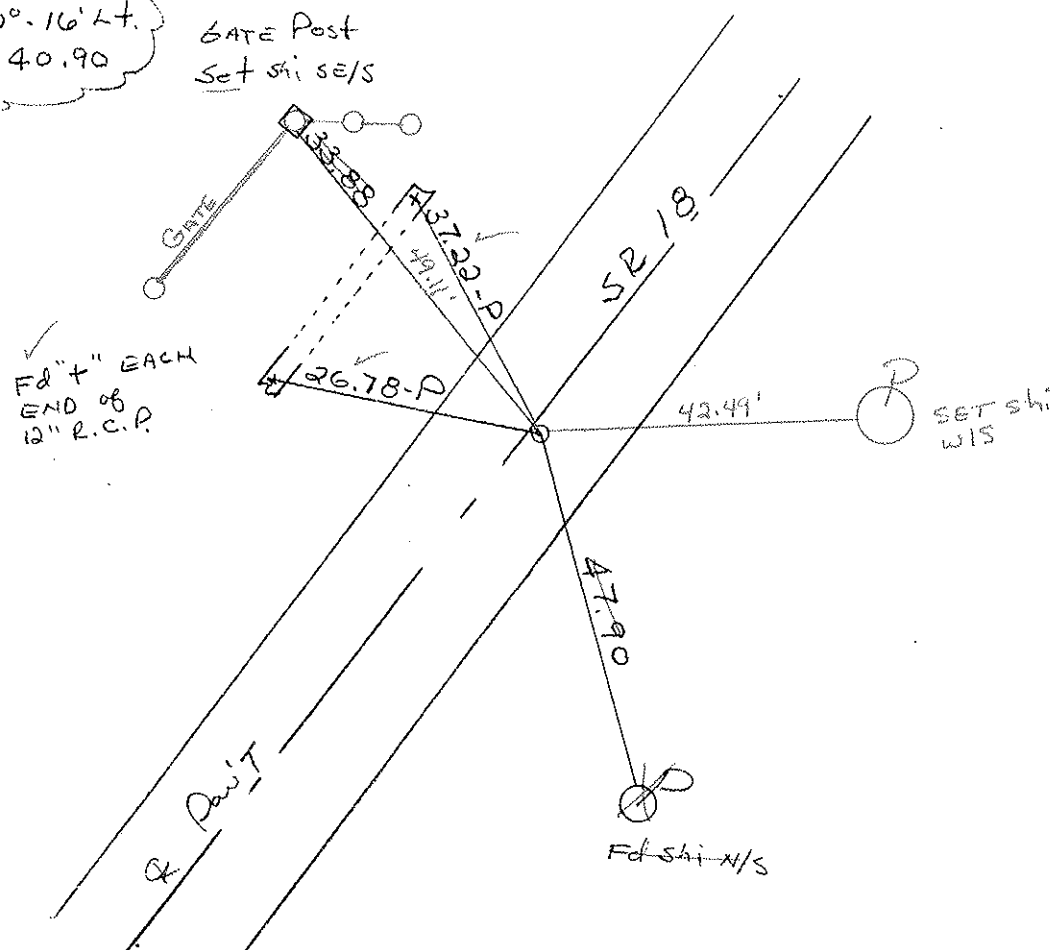 °. 16' Lt.
40.90
GATE Post
Set shi SE/S
33.88
37.22-P
49.11'
GATE
SR 18
Fd "+" EACH
END of
12" R.C.P.
26.78-P
42.49'
P
SET shi
W/S
47.90
P
Fd shi N/S
℄ Pav'T